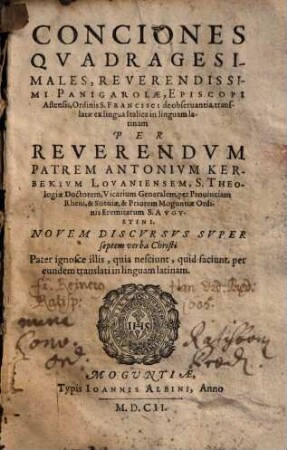 CONCIONES
QVADRAGESI-
MALES, REVERENDISSI-
MI PANIGAROLÆ, EPISCOPI
Astensis, Ordinis S. FRANCISCI de obseruantia, trans-
latæ ex lingua Italica in linguam la-
tinam
PER
REVERENDVM
PATREM ANTONIVM KER-
BEKIVM LOVANIENSEM, S. THEO-
logiæ Doctorem, Vicarium Generalem, per Prouinciam
Rheni, & Sueuiæ, & Priorem Moguntiæ Ordi-
nis Eremitarum S. AVGV-
STINI.
NOVEM DISCVRSVS SVPER
septem verba Christi
Pater ignosce illis, quia nesciunt, quid faciunt, per
eundem translati in linguam latinam.
IHS
MOGVNTIÆ,
Typis IOANNIS ALBINI, Anno
M.D.CII.